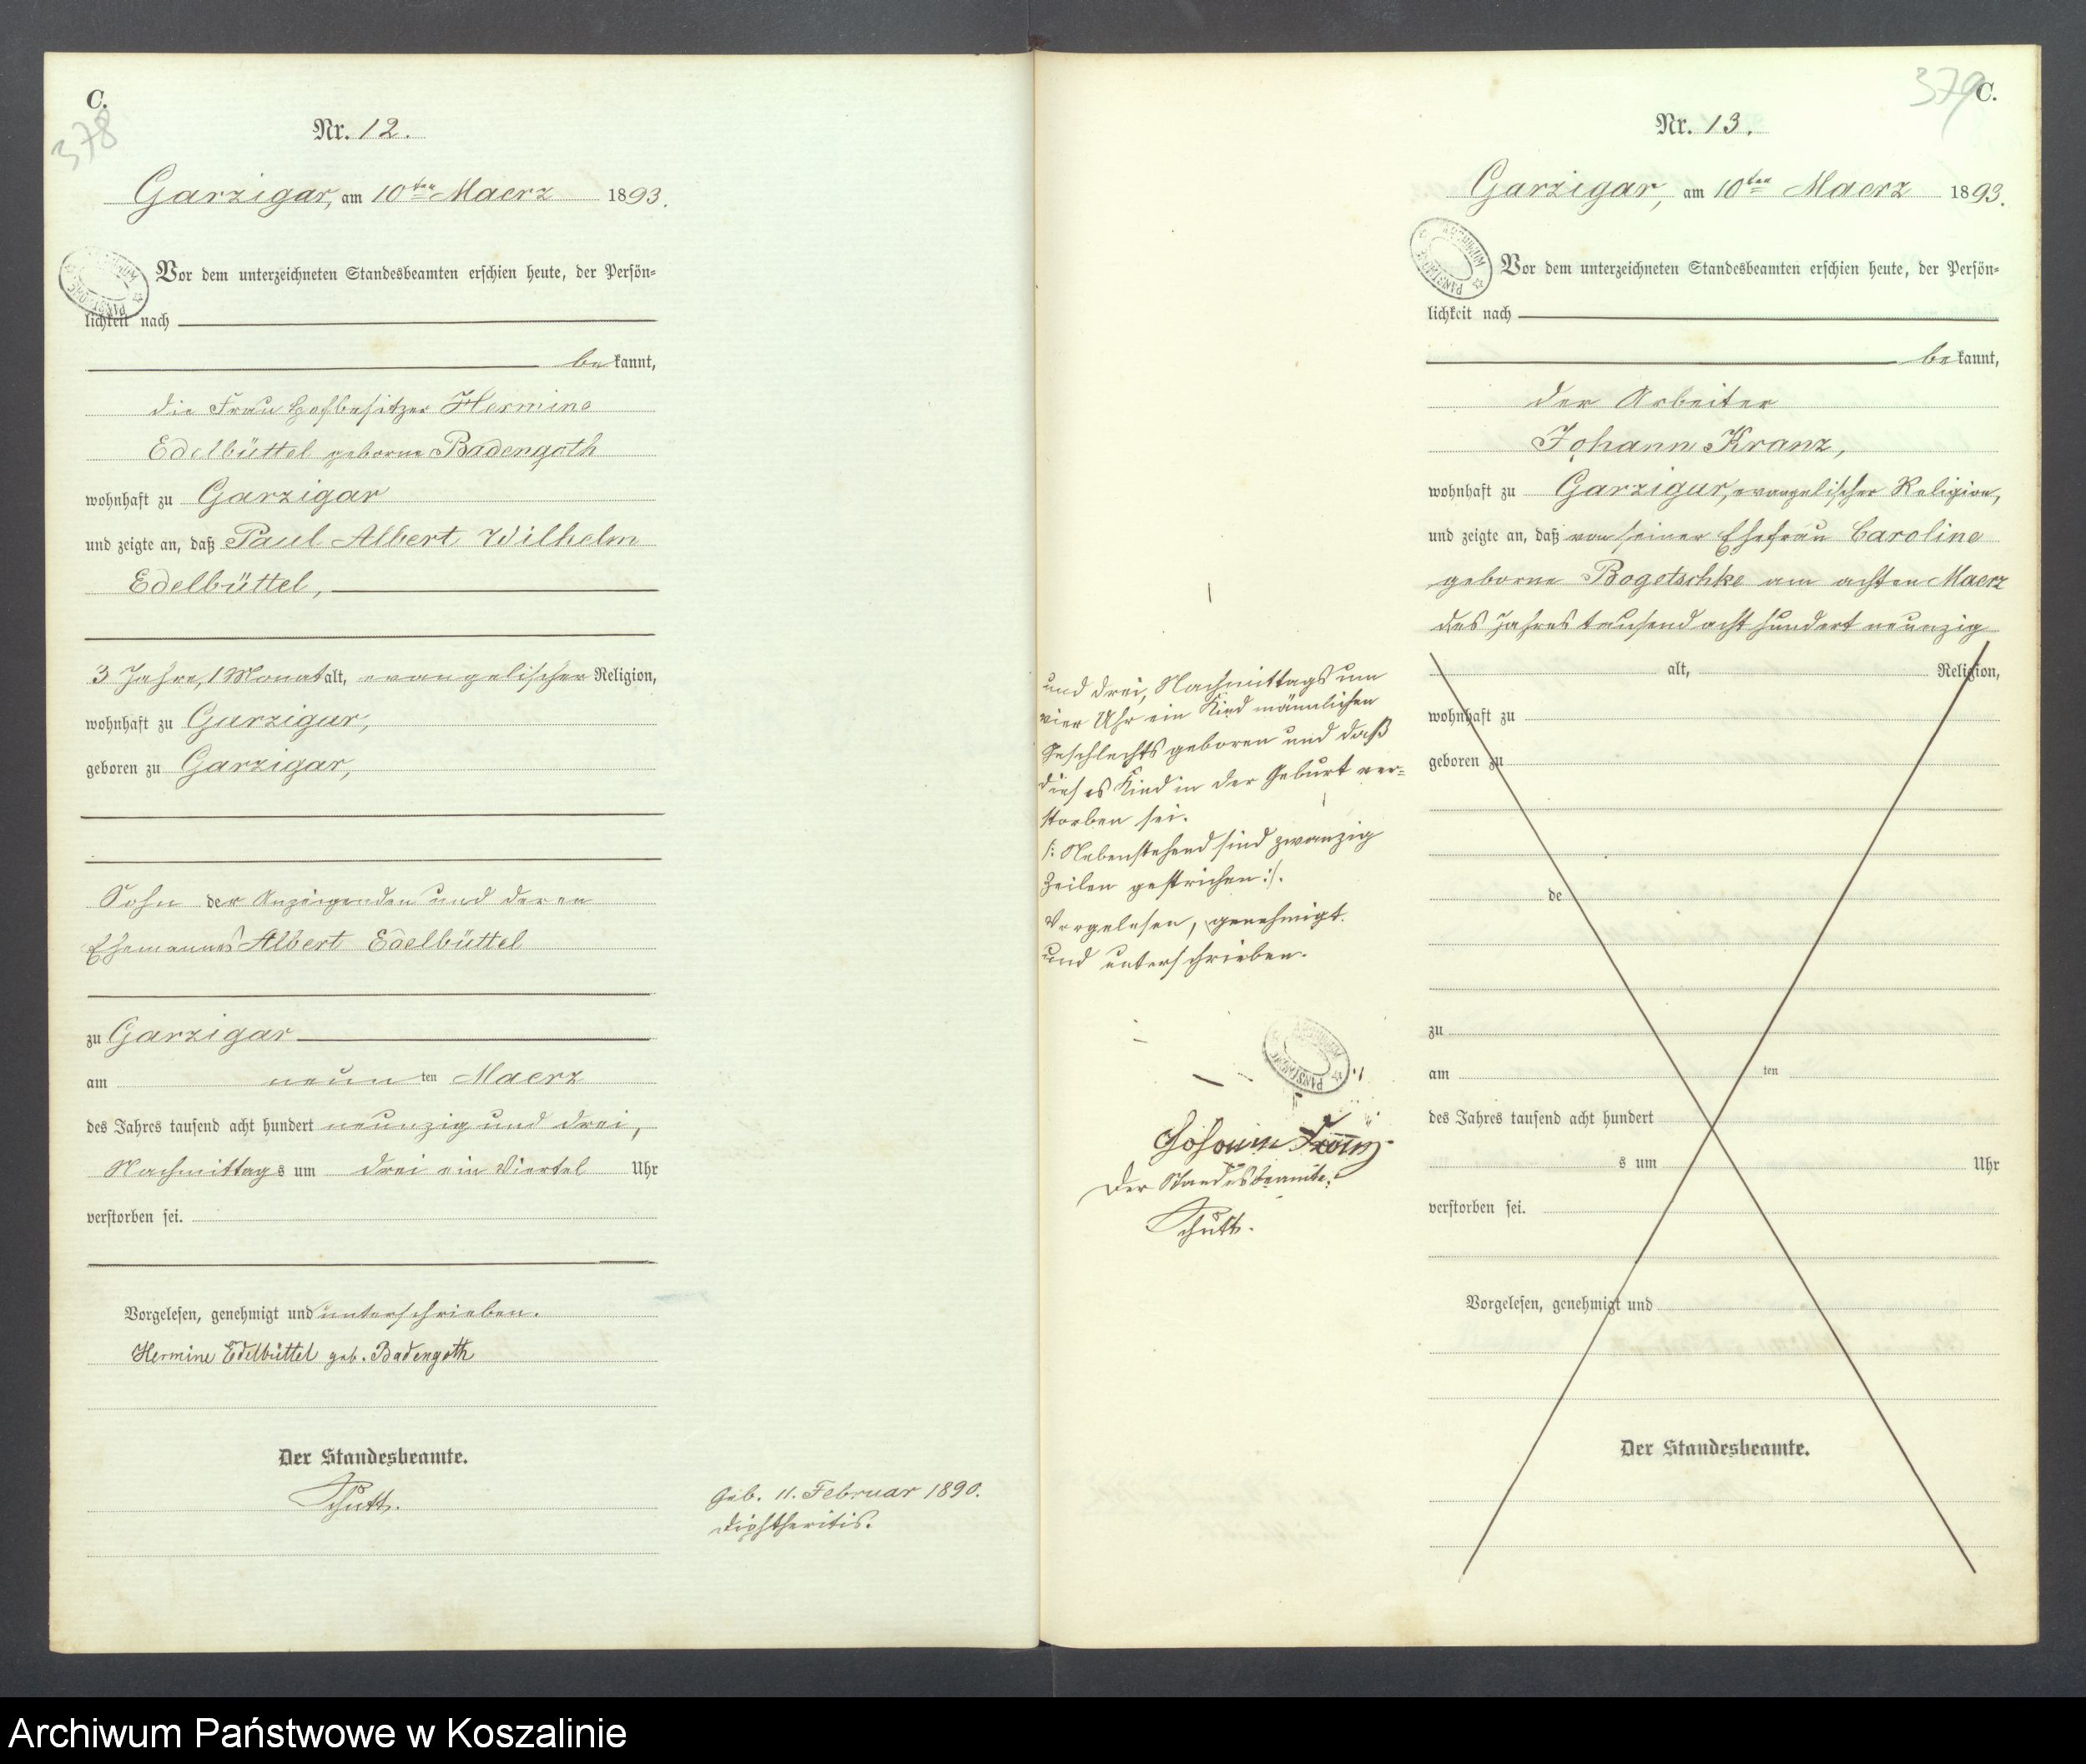 C.
378
Nr. 12.
Garzigar, am 10ten Maerz 1893.
Vor dem unterzeichneten Standesbeamten erschien heute, der Persön-
lichkeit nach
bekannt,
die Frau Hofbesitzer Hermine
Edelbüttel geborne Badengoth
wohnhaft zu Garzigar
und zeigte an, daß Paul Albert Wilhelm
Edelbüttel,
3 Jahre, 1 Monat alt, evangelischer Religion,
wohnhaft zu Garzigar,
geboren zu Garzigar,
Sohn der Anzeigenden und deren
Ehemannes Albert Edelbüttel
zu Garzigar
am neunten Maerz
des Jahres tausend acht hundert neunzig und drei,
Nachmittags um drei ein Viertel Uhr
verstorben sei.
Vorgelesen, genehmigt und unterschrieben.
Hermine Edelbüttel geb. Badengoth
Der Standesbeamte.
Schutt.
Geb. 11. Februar 1890.
Diphtheritis.
379
C.
Nr. 13.
Garzigar, am 10ten Maerz 1893.
ARCHIWUM PAŃSTWOWE
Vor dem unterzeichneten Standesbeamten erschien heute, der Persön-
lichkeit nach
bekannt,
der Arbeiter
Johann Kranz,
wohnhaft zu Garzigar, evangelischer Religion,
und zeigte an, daß von seiner Ehefrau Caroline
geborne Bogotschke am achten Maerz
des Jahres tausend acht hundert neunzig
und drei, Nachmittags um
vier Uhr ein Kind männlichen
Geschlechts geboren und daß
dieses Kind in der Geburt ver-
storben sei.
/: Nebenstehend sind zwanzig
Zeilen gestrichen :/.
Vorgelesen, genehmigt
und unterschrieben.
Johann Kranz
Der Standesbeamte.
Schutt.
alt, Religion,
wohnhaft zu
geboren zu
de
zu
am ten
des Jahres tausend acht hundert
s um Uhr
verstorben sei.
Vorgelesen, genehmigt und
Der Standesbeamte.
Archiwum Państwowe w Koszalinie